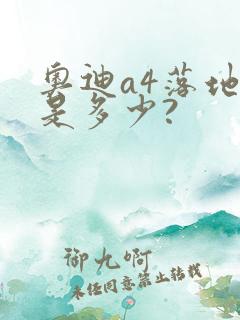 奥迪a4落地
是多少?
御九啊
未经同意禁止转载